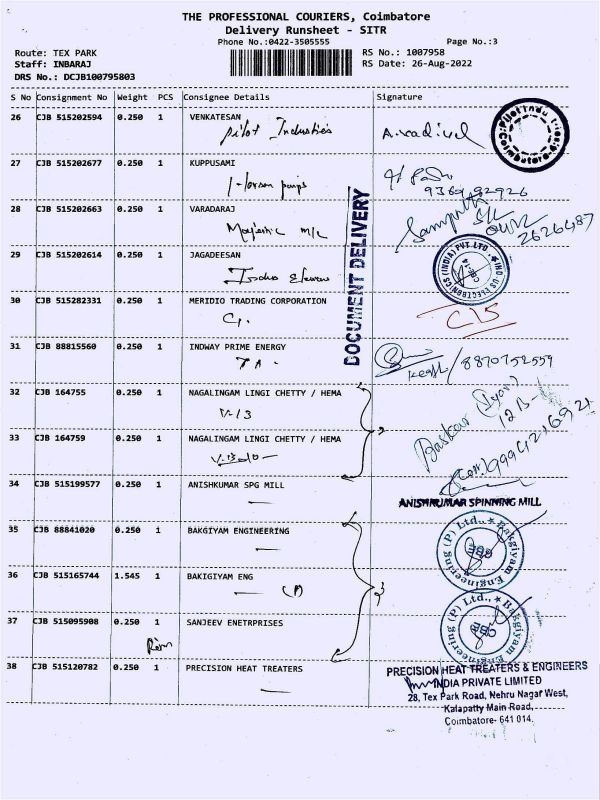 THE PROFESSIONAL COURIERS, Coimbatore
Delivery Runsheet - SITR
Phone No.:0422-3505555 Page No.:3
Route: TEX PARK RS No.: 1007958
Staff: INBARAJ RS Date: 26-Aug-2022
DRS No.: DCJB100795803
S No Consignment No Weight PCS Consignee Details Signature
26 CJB 515202594 0.250 1 VENKATESAN
Pilot Industries A.vadivel
27 CJB 515202677 0.250 1 KUPPUSAMI
28 CJB 515202663 0.250 1 VARADARAJ
m/c 2626487
29 CJB 515202614 0.250 1 JAGADEESAN
DOCUMENT DELIVERY
30 CJB 515282331 0.250 1 MERIDIO TRADING CORPORATION
31 CJB 88815560 0.250 1 INDWAY PRIME ENERGY
8870752559
32 CJB 164755 0.250 1 NAGALINGAM LINGI CHETTY / HEMA
V-13
33 CJB 164759 0.250 1 NAGALINGAM LINGI CHETTY / HEMA
Baskar
34 CJB 515199577 0.250 1 ANISHKUMAR SPG MILL
ANISHKUMAR SPINNING MILL
35 CJB 88841020 0.250 1 BAKGIYAM ENGINEERING
Bakgiyam Engineering (P) Ltd.,
36 CJB 515165744 1.545 1 BAKIGIYAM ENG
37 CJB 515095908 0.250 1 SANJEEV ENETRPRISES
Bakgiyam Engineering (P) Ltd.,
38 CJB 515120782 0.250 1 PRECISION HEAT TREATERS
PRECISION HEAT TREATERS & ENGINEERS
INDIA PRIVATE LIMITED
28, Tex Park Road, Nehru Nagar West,
Kalapatty Main Road,
Coimbatore- 641 014.